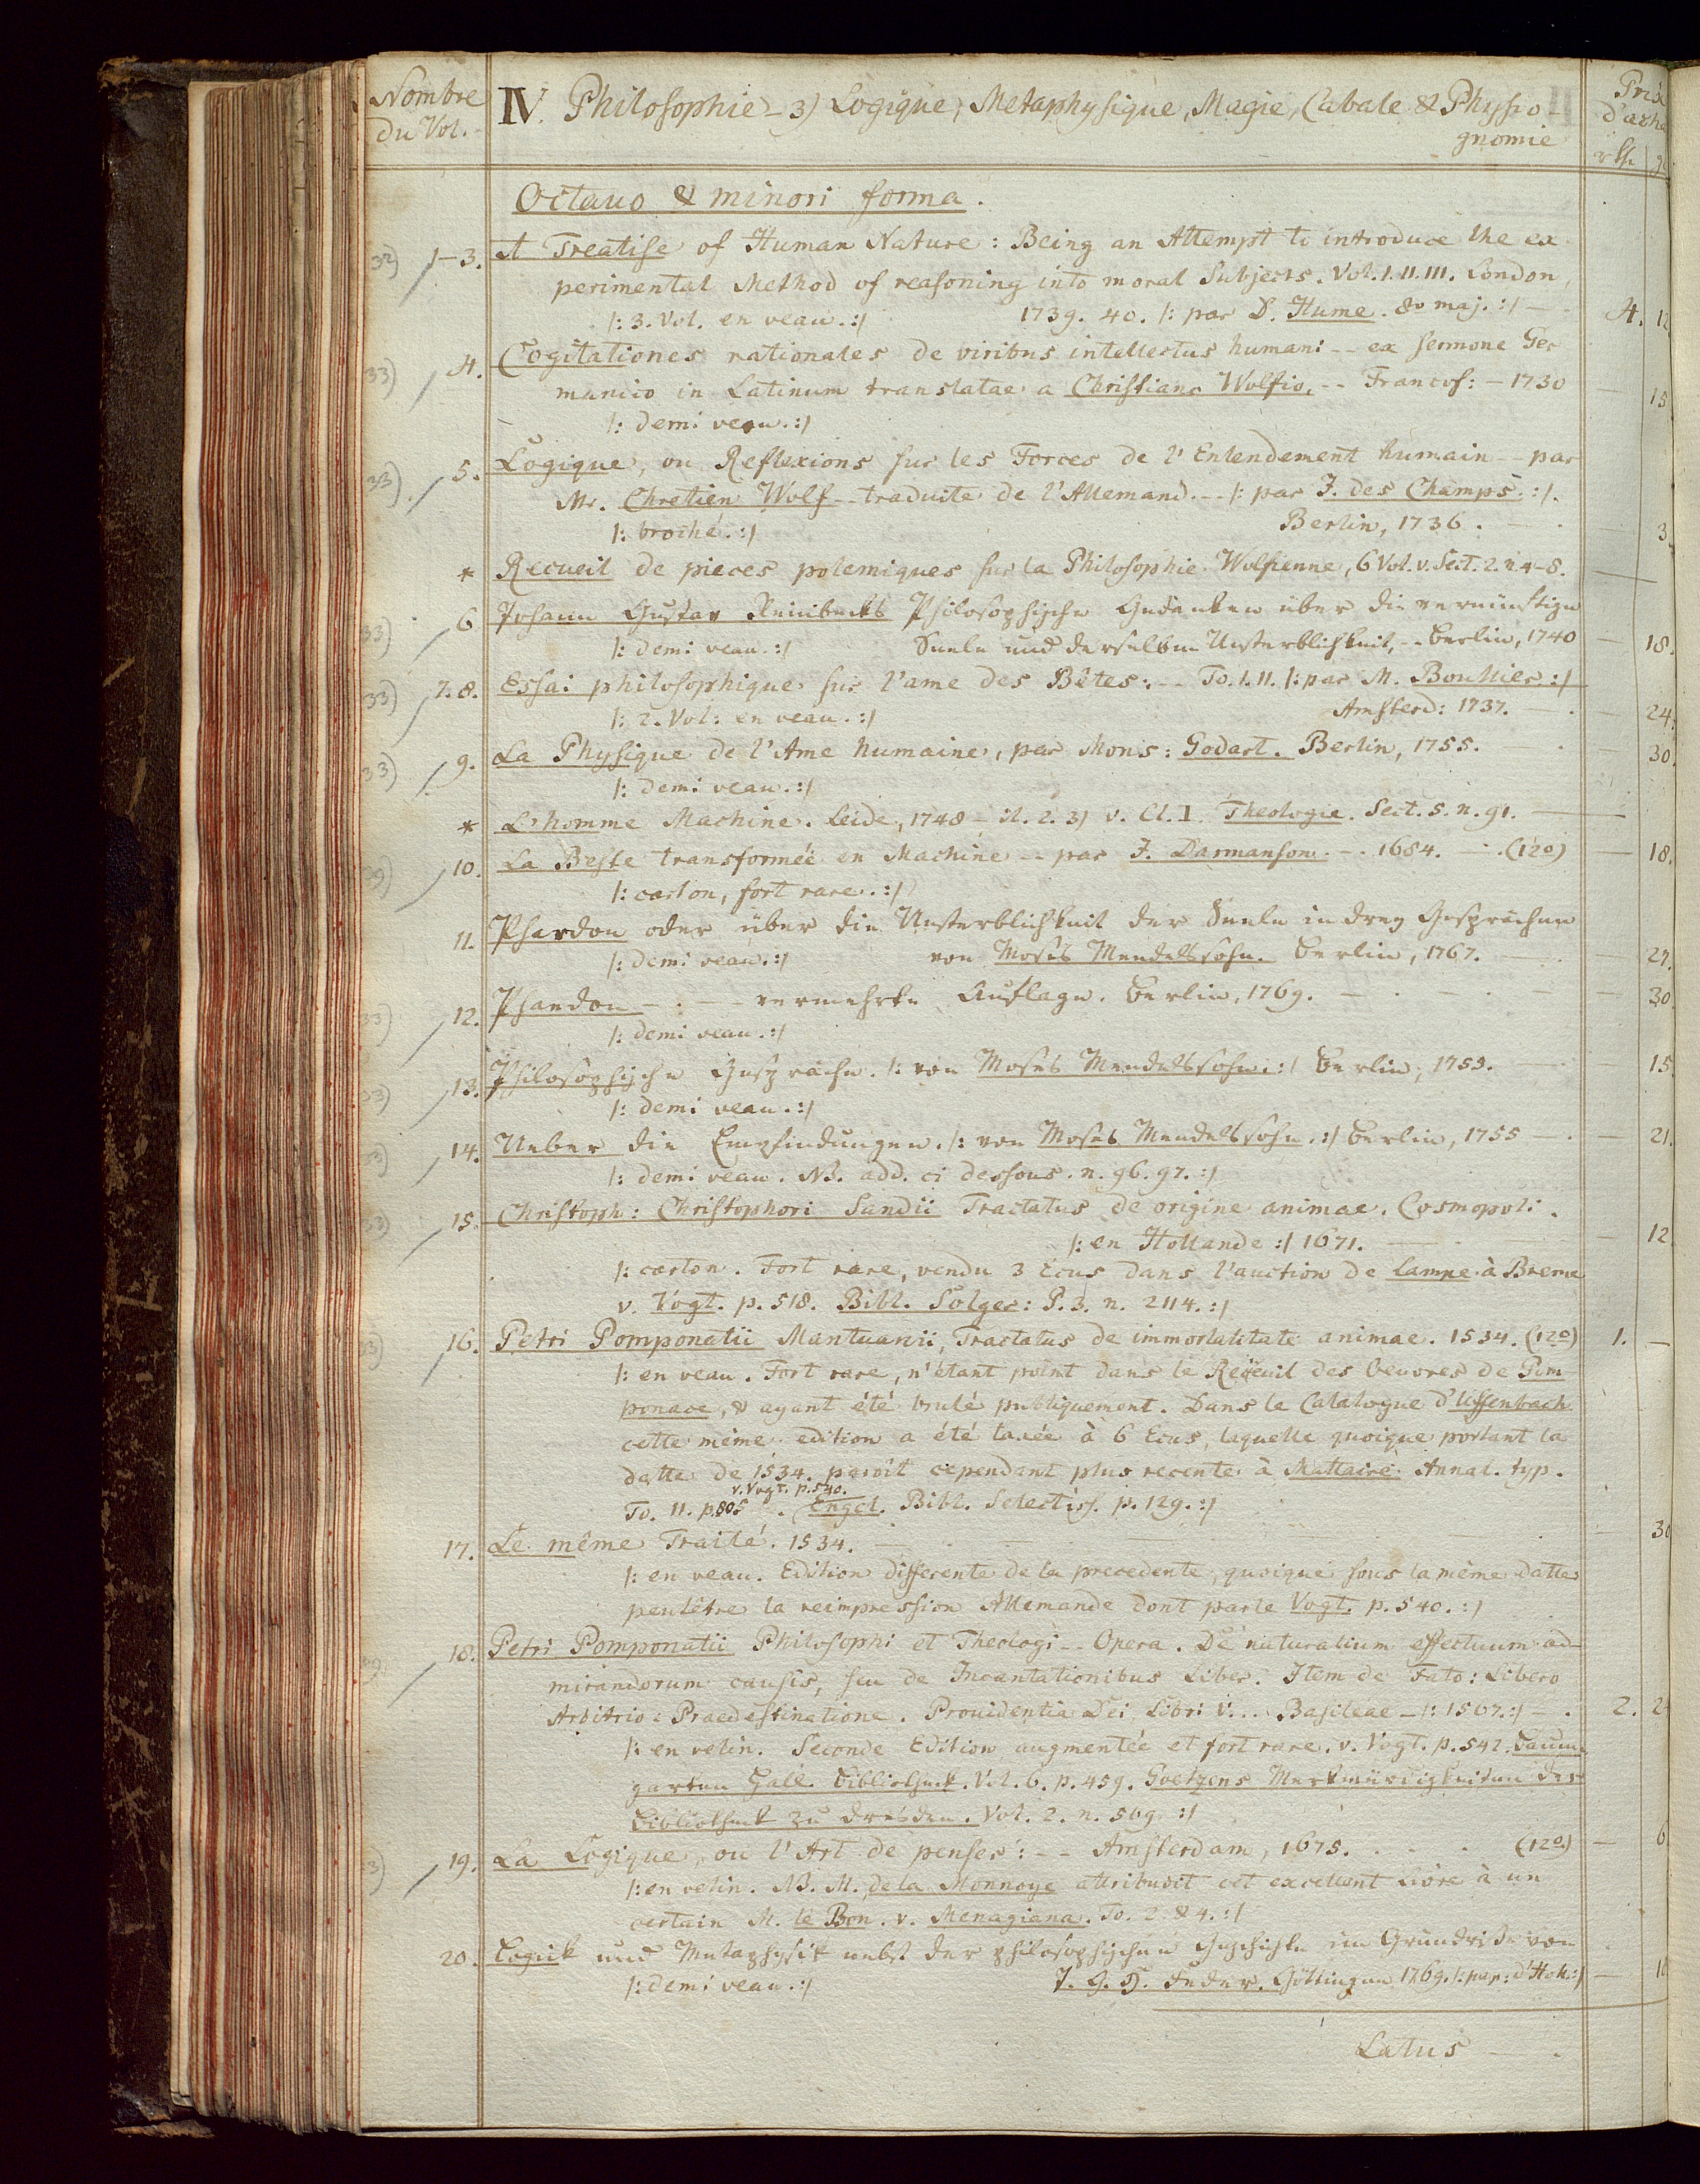 Nombre
du Vol.
IV. Philosophie - 3) Logique, Metaphysique, Magie, Cabale & Physio-
gnomie
Prix
d'acha
rth. g
Octavo & minori forma.
32) 1-3. A Treatise of Human Nature: Being an Attempt to introduce the ex
perimental Method of reasoning into moral Subjects. Vol. I. II. III. London,
|: 3. Vol. en veau. :| 1739. 40. |: par D. Hume. 8v maj. :| — 4. 12
33) 4. Cogitationes rationales de viribus intellectus humani -- ex sermone Ger
manico in Latinum translatae a Christiano Wolfio. -- Francof: - 1730 — 15
|: demi veau. :|
33) 5. Logique, ou Reflexions sur les Forces de l'Entendement humain -- par
Mr. Chretien Wolf -- traduite de l'Allemand. -- |: par J. des Champs. :|.
|: broché. :| Berlin, 1736. — 3.
* Recueil de pieces polemiques sur la Philosophie Wolfienne, 6 Vol. v. Sect. 2. n. 4-8. —
33) 6. Johann Gustav Reinbecks Philosophische Gedanken über die vernünftige
|: demi veau. :| Seele und derselben Unsterblichkeit, -- Berlin, 1740 — 18.
33) 7. 8. Essai philosophique sur l'ame des Bêtes: -- To. I. II. |: par M. Boullier :|
|: 2. Vol: en veau. :| Amsterd: 1737. — 24.
33) 9. La Physique de l'Ame humaine, par Mons: Godart. Berlin, 1755. — 30.
|: demi veau. :|
* L'homme Machine. Leide, 1748 - it. 2. 3) v. Cl. I. Theologie. Sect. 5. n. 91. —
10. La Beste transformée en Machine -- par J. Darmanson. -- 1684. — (12o) — 18.
|: carton, fort rare. :|
11. Phaedon oder über die Unsterblichkeit der Seele in drey Gesprächen
|: demi veau. :| von Moses Mendelssohn. Berlin, 1767. — 27.
33) 12. Phaedon - : - - vermehrte Auflage. Berlin, 1769. — 30.
|: demi veau. :|
33) 13. Philosophische Gespräche. |: von Moses Mendelssohn. :| Berlin, 1755. — 15.
|: demi veau. :|
33) 14. Ueber die Empfindungen. |: von Moses Mendelssohn. :| Berlin, 1755 — 21.
|: demi veau. NB. add. ci dessous. n. 96. 97. :|
33) 15. Christoph: Christophori Sandii Tractatus de origine animae. Cosmopoli.
|: en Hollande :| 1671. — 12
|: carton. Fort rare, vendu 3 Ecus dans l'auction de Lampe à Breme
v. Vogt. p. 518. Bibl. Solger: P. 3. n. 2114. :|
33) 16. Petri Pomponatii Mantuanii, Tractatus de immortalitate animae. 1534. (12o) 1. —
|: en veau. Fort rare, n'étant point dans le Recueil des Oeuvres de Pom
ponace, & ayant été brulé publiquement. Dans le Catalogue d'Uffenbach
cette même edition a été taxée à 6 Ecus, laquelle quoique portant la
datte de 1534. paroît cependant plus recente à Mattaire. Annal. typ.
v. Vogt. p. 540.
To. II. p. 805. Engel. Bibl. Selectiss. p. 129. :|
17. Le même Traité. 1534. — 30
|: en veau. Edition differente de la precedente, quoique sous la même datte
peutêtre la reimpression Allemande dont parle Vogt. p. 540. :|
18. Petri Pomponatii Philosophi et Theologi -- Opera. De naturalium effectuum ad-
mirandorum causis, seu de Incantationibus Liber. Item de Fato: Libero
Arbitrio: Praedestinatione. Providentia Dei, Libri V... Basileae - |: 1567. :| — 2. 2
|: en velin. Seconde Edition augmentée et fort rare. v. Vogt. p. 542. Baum
garten Hall. Bibliothek. Vol. 6. p. 459. Goetzens Merkwürdigkeiten der
Bibliothek zu Dresden. Vol. 2. n. 569. :|
19. La Logique, ou l'Art de penser: -- Amsterdam, 1675. (12o.) — 6
|: en velin. NB. M. de la Monnoye attribuoit cet excellent Livre à un
certain M. le Bon. v. Menagiana. To. 2. & 4. :|
20. Logick und Metaphysik nebst der philosophischen Geschichte im Grundrisse von
|: demi veau. :| J. G. H. Feder. Göttingen 1769. |: pap: d'Holl. :| — 16
Latus —